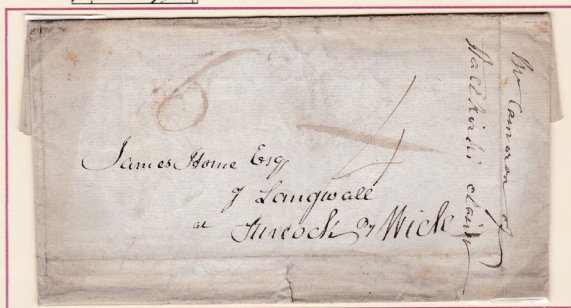 6
4
James Horne Esq
of Langwall
at
by Wick
Mr Cameron of
claim